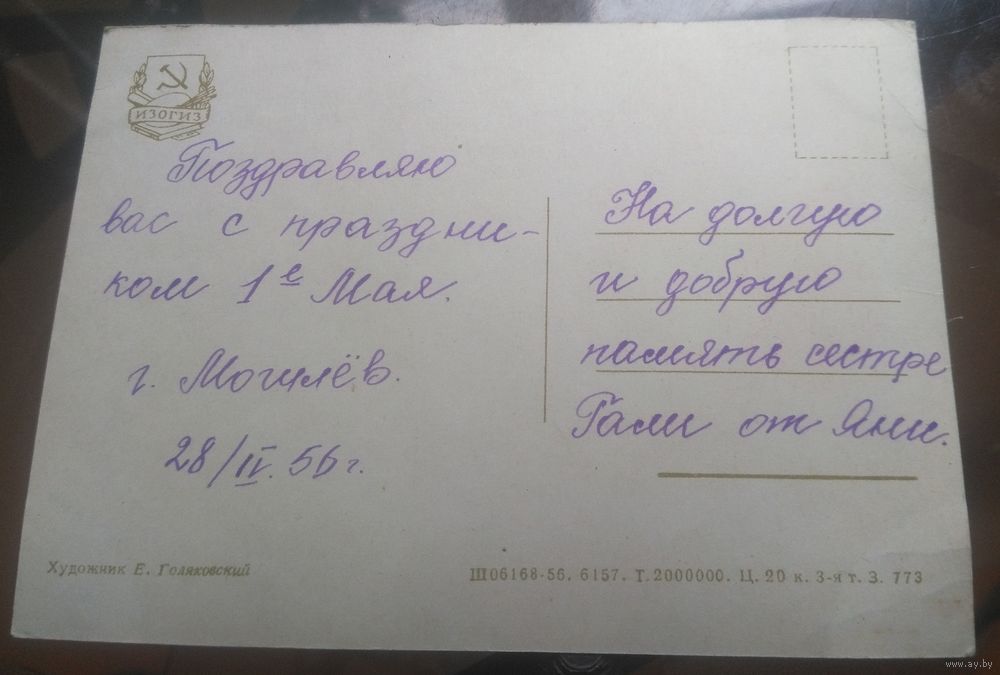 ИЗОГИЗ
Поздравляю
вас с праздни-
ком 1е Мая.
г. Могилёв.
28/IV. 56 г.
На долгую
и добрую
память сестре
Гали от Яни.
Художник Е. Голяковский
Ш06168-56. 6157. Т. 2000000. Ц. 20 к. 3-я т. З. 773
www.ay.by